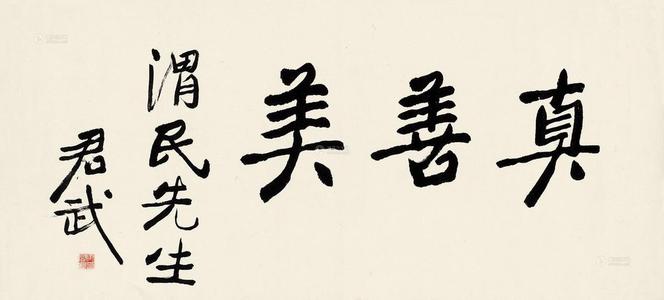 真善美
渭民先生
君武